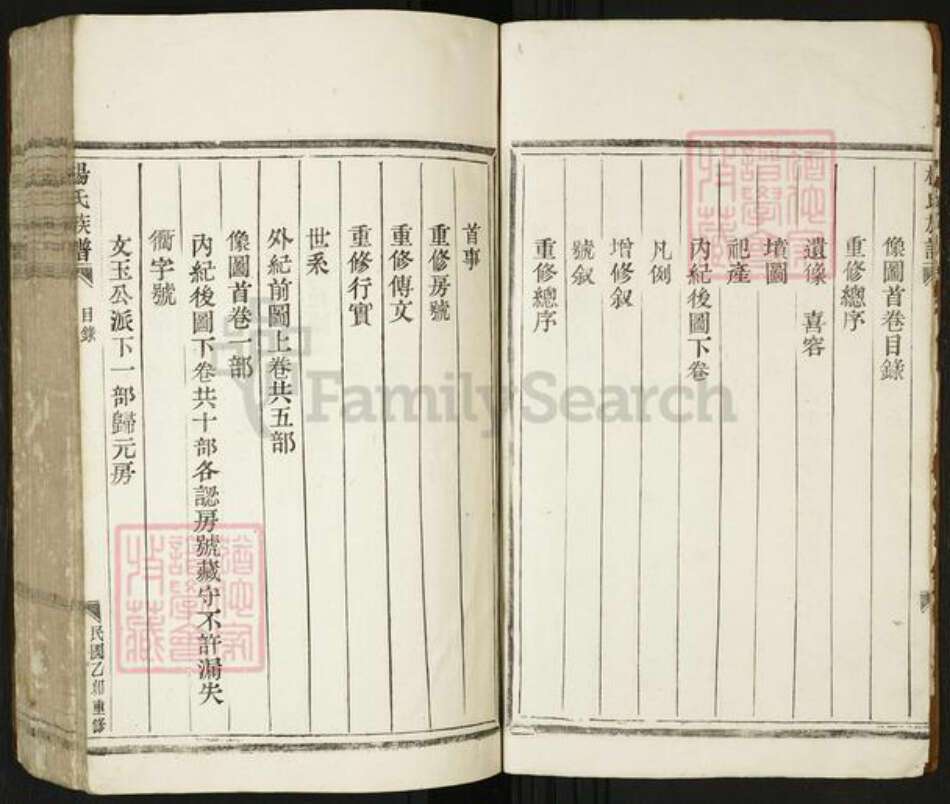 像圖首卷目錄
重修總序
遺像 喜容
墳圖
祀產
內紀後圖下卷
凡例
增修叙
號叙
重修總序
首事
重修房號
重修傳文
重修行實
世系
外紀前圖上卷共五部
像圖首卷一部
內紀後圖下卷共十部各認房號藏守不許漏失
衢字號
文玉公派下一部歸元房
楊氏族譜
目錄
民國乙卯重修
FamilySearch